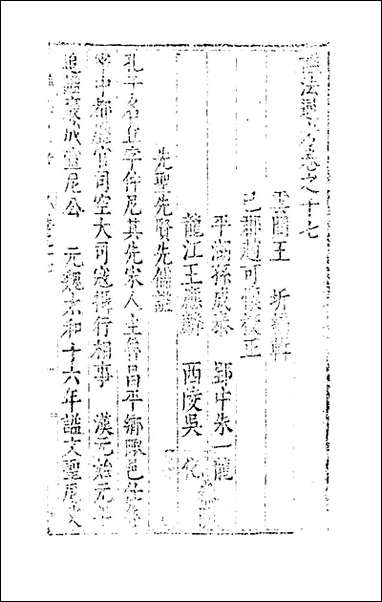 謚法通考卷之十七
雲間王 圻 編輯
巴郡趙可懷校正
平湖孫成泰 郢中朱一龍
龍江王應麟 西陵吳 化
先聖先賢先儒謚
孔子名丘字仲尼其先宋人生魯昌平鄉陬邑仕魯
宰中都歷官司空大司寇攝行相事 漢元始元年
追謚褒成宣尼公 元魏太和十六年謚文聖尼父